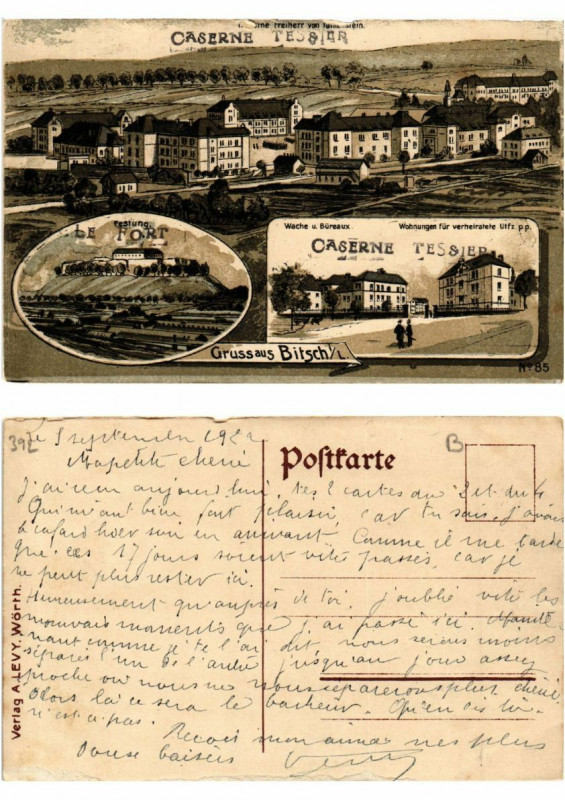 Kaserne Freiherr von
CASERNE TESSIER
Festung.
LE FORT
Wache u. Büreaux. Wohnungen für verheiratete Uffz p.p.
CASERNE TESSIER
Gruss aus Bitsch i/L.
No 85
392
B
Postkarte
Verlag A. LEVY, Wörth.
Le 5 septembre 192
Ma petite chérie
J'ai reçu aujourd'hui, tes 2 cartes du 3 et du 4
Qui m'ont bien fait plaisir, car tu sais j'avais
le cafard hier soir en arrivant. Comme il me tarde
que ces 17 jours soient vite passés, car je
ne peut plus rester ici.
Heureusement qu'auprès de toi, j'oublie vite les
mauvais moments que j'ai passé ici. Mainte
nant comme je te l'ai dit nous serons moins
séparés l'un de l'autre jusqu'au jour assez
proche ou nous ne nous séparerons plus, chérie.
Alors là ce sera le bonheur. Qu'en dis tu.
n'est ce pas.
Reçoit mon aimée mes plus
doux baisers